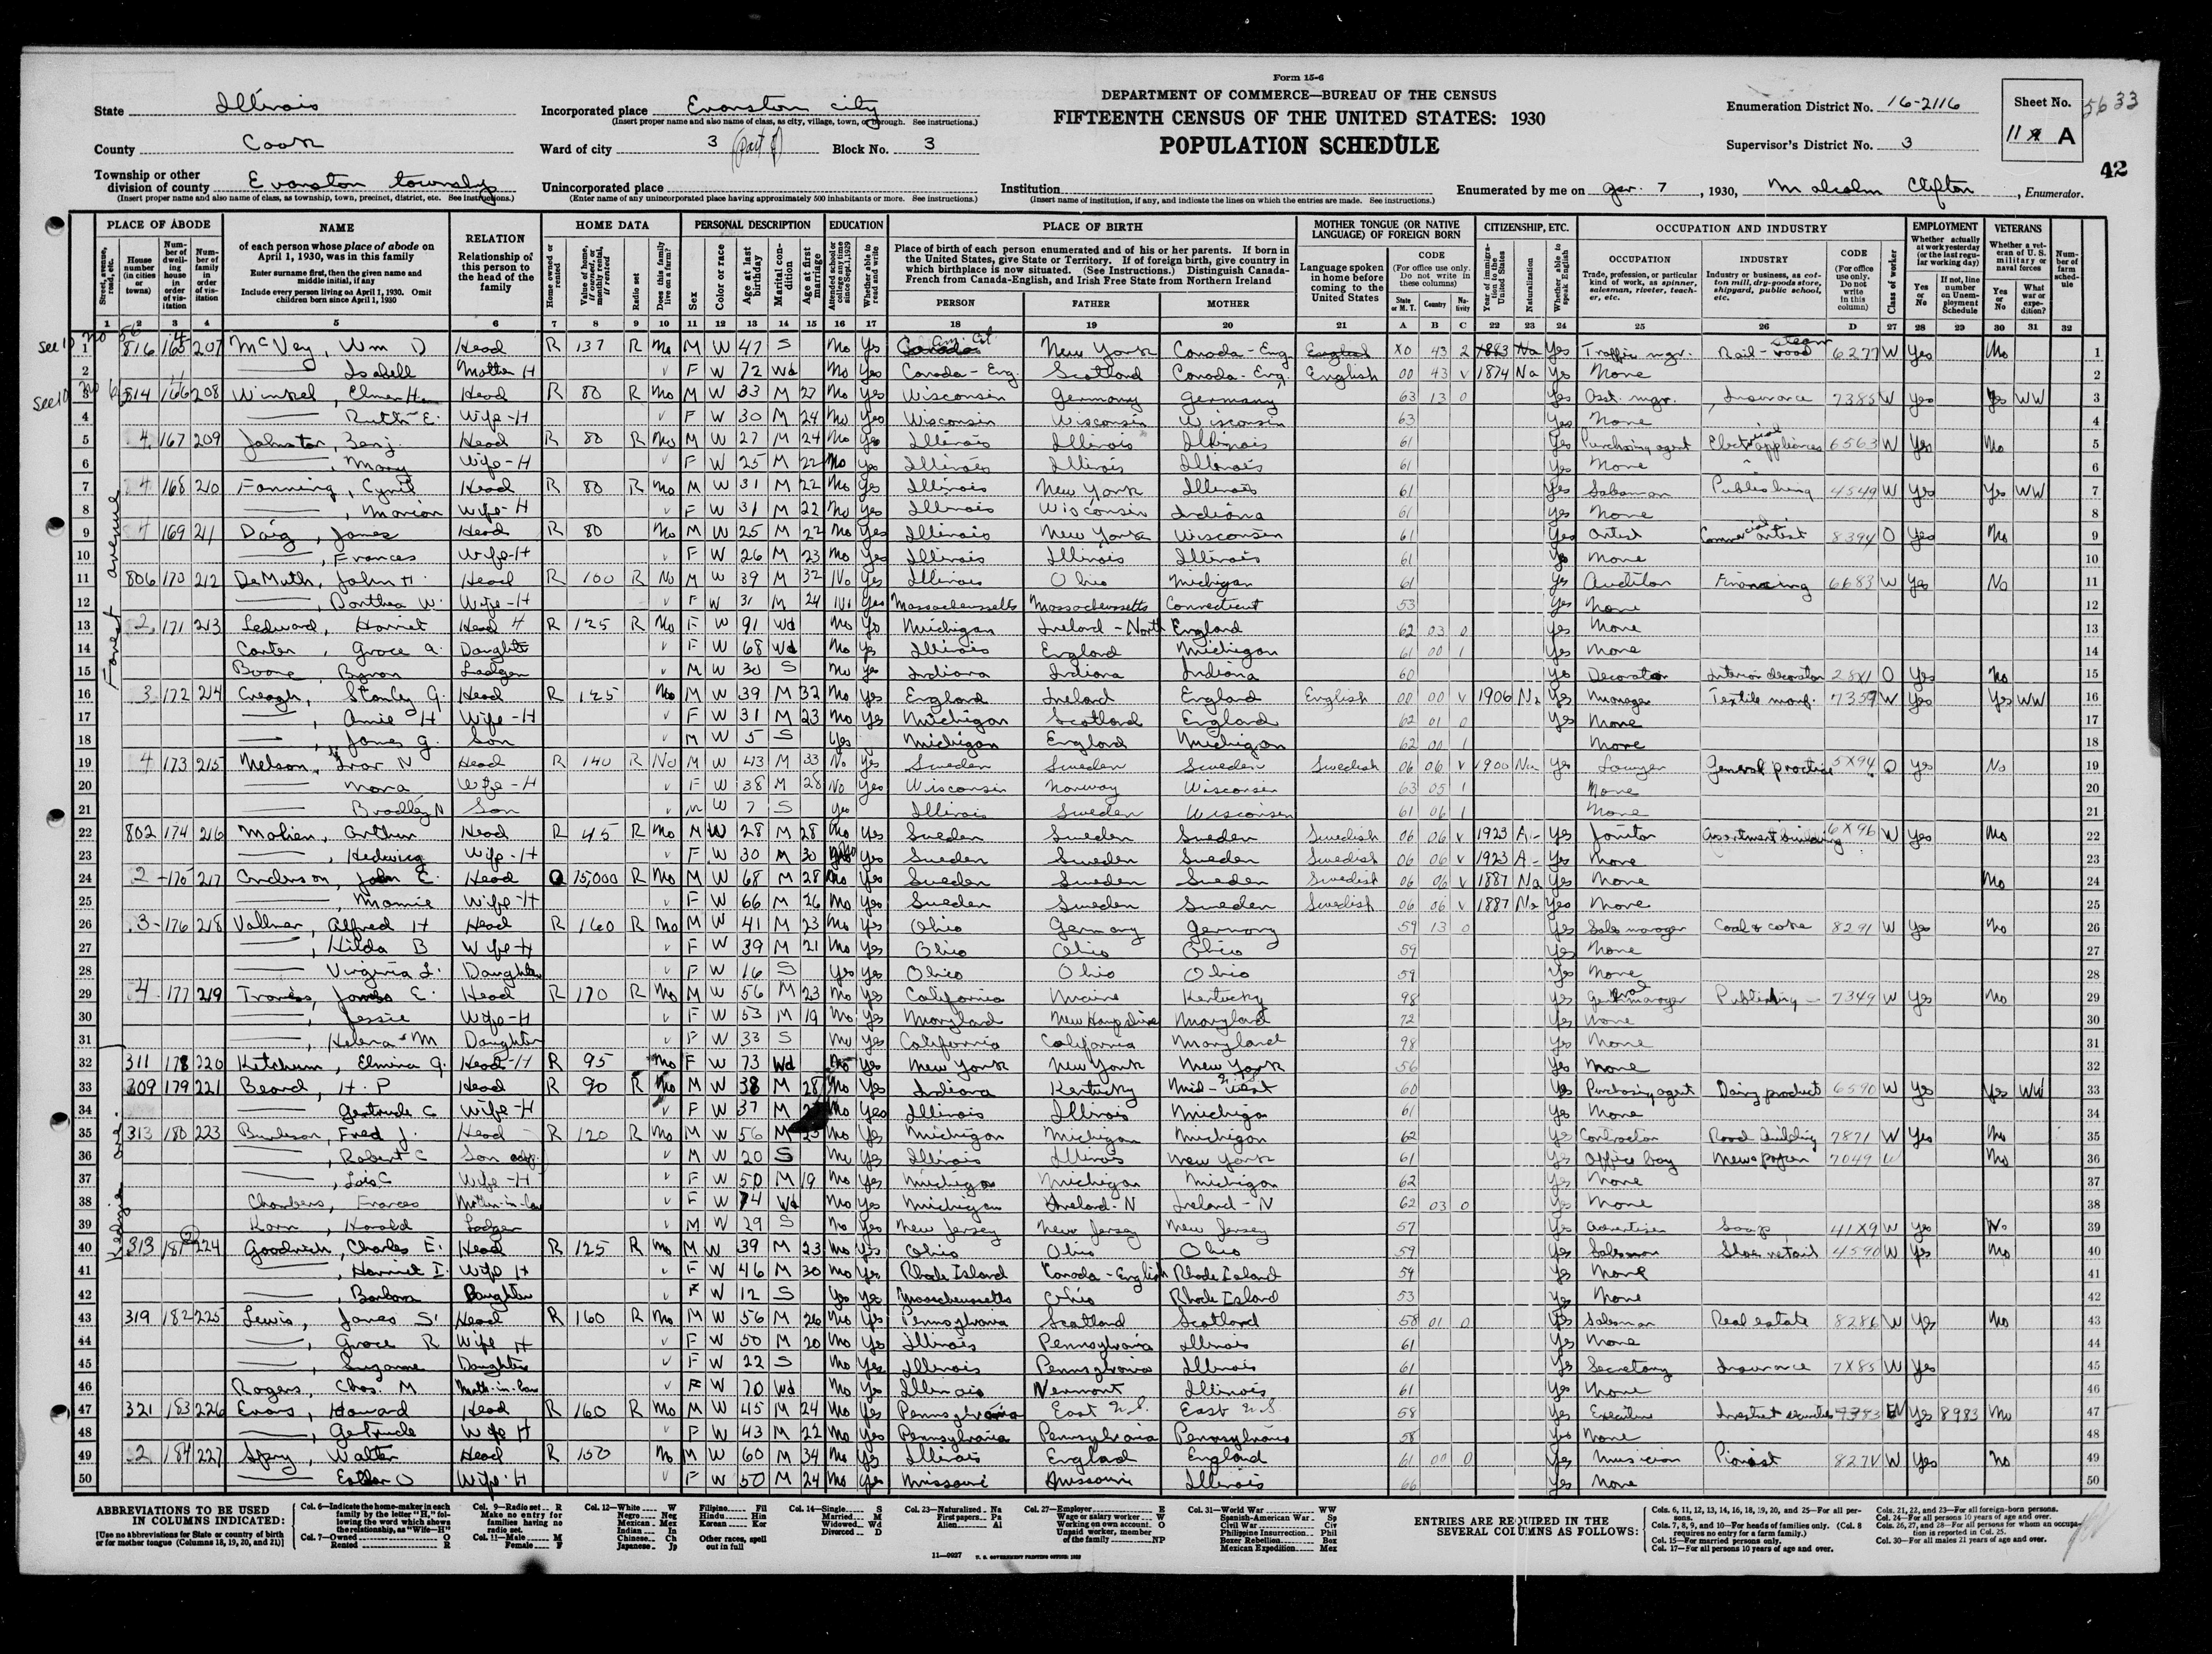 Form 15-6
State Illinois
County Cook
Township or other division of county Evanston township
(Insert proper name and also name of class, as township, town, precinct, district, etc. See instructions.)
Incorporated place Evanston city
(Insert proper name and also name of class, as city, village, town, or borough. See instructions.)
Ward of city 3 (part of) Block No. 3
Unincorporated place
(Enter name of any unincorporated place having approximately 500 inhabitants or more. See instructions.)
DEPARTMENT OF COMMERCE—BUREAU OF THE CENSUS
FIFTEENTH CENSUS OF THE UNITED STATES: 1930
POPULATION SCHEDULE
Institution
(Insert name of institution, if any, and indicate the lines on which the entries are made. See instructions.)
Enumeration District No. 16-2116
Supervisor's District No. 3
Sheet No. 11 A
5633
42
Enumerated by me on Apr. 7, 1930, Malcolm Clifton, Enumerator.
PLACE OF ABODE NAME RELATION HOME DATA PERSONAL DESCRIPTION EDUCATION PLACE OF BIRTH MOTHER TONGUE (OR NATIVE LANGUAGE) OF FOREIGN BORN CITIZENSHIP, ETC. OCCUPATION AND INDUSTRY EMPLOYMENT VETERANS
of each person whose place of abode on April 1, 1930, was in this family
Enter surname first, then the given name and middle initial, if any
Include every person living on April 1, 1930. Omit children born since April 1, 1930
Relationship of this person to the head of the family
Place of birth of each person enumerated and of his or her parents. If born in the United States, give State or Territory. If of foreign birth, give country in which birthplace is now situated. (See Instructions.) Distinguish Canada-French from Canada-English, and Irish Free State from Northern Ireland
PERSON FATHER MOTHER
Language spoken in home before coming to the United States
OCCUPATION INDUSTRY CODE
1 2 3 4 5 6 7 8 9 10 11 12 13 14 15 16 17 18 19 20 21 A B C 22 23 24 25 26 D 27 28 29 30 31 32
Forest avenue
1 816 165 207 McVey, Wm D Head R 137 R No M W 47 S No Yes New York Canada-Eng X0 43 2 Na Yes Traffic mgr. Rail-road steam 6277 W Yes No 1
2 Isabell Mother H F W 72 Wd No Yes Canada-Eng. Scotland Canada-Eng. English 00 43 V 1874 Na Yes None 2
3 814 166 208 Winkel, Elmer H Head R 80 R No M W 33 M 27 No Yes Wisconsin Germany Germany 63 13 0 Yes Asst. mgr. Insurance 7385 W Yes Yes WW 3
4 Ruth E. Wife-H F W 30 M 24 No Yes Wisconsin Wisconsin Wisconsin 63 Yes None 4
5 4 167 209 Johnston, Benj. Head R 80 R No M W 27 M 24 No Yes Illinois Illinois Illinois 61 Yes Purchasing agent Electrical appliances 6563 W Yes No 5
6 Mary Wife-H F W 25 M 22 No Yes Illinois Illinois Illinois 61 Yes None 6
7 4 168 210 Fanning, Cyril Head R 80 R No M W 31 M 22 No Yes Illinois New York Illinois 61 Yes Salesman Publishing 4549 W Yes Yes WW 7
8 Marion Wife-H F W 31 M 22 No Yes Illinois Wisconsin Indiana 61 Yes None 8
9 4 169 211 Daig, James Head R 80 No M W 25 M 22 No Yes Illinois New York Wisconsin 61 Yes Artist Commercial artist 8394 O Yes No 9
10 Frances Wife-H F W 26 M 23 No Yes Illinois Illinois Illinois 61 Yes None 10
11 806 170 212 DeMuth, John H. Head R 100 R No M W 39 M 32 No Yes Illinois Ohio Michigan 61 Yes Auditor Financing 6683 W Yes No 11
12 Dorthea W. Wife-H F W 31 M 24 No Yes Massachussetts Massachussetts Connecticut 53 Yes None 12
13 2 171 213 Ledward, Harriet Head H R 125 R No F W 91 Wd No Yes Michigan Ireland-North England 62 03 0 Yes None 13
14 Carter, Grace A. Daughter F W 68 Wd No Yes Illinois England Michigan 61 00 1 Yes None 14
15 Boone, Byron Lodger M W 30 S No Yes Indiana Indiana Indiana 60 Yes Decorator Interior decorator 28X1 O Yes No 15
16 3 172 214 Creagh, Stanley G. Head R 125 No M W 39 M 32 No Yes England Ireland England English 00 00 V 1906 Na Yes Manager Textile manf. 7359 W Yes Yes WW 16
17 Amie H Wife-H F W 31 M 23 No Yes Michigan Scotland England 62 01 0 Yes None 17
18 James G. Son M W 5 S Yes Michigan England Michigan 62 00 1 None 18
19 4 173 215 Nelson, Ivar N Head R 140 R No M W 43 M 33 No Yes Sweden Sweden Sweden Swedish 06 06 V 1900 Na Yes Lawyer General practice 5X94 O Yes No 19
20 Nora Wife-H F W 38 M 28 No Yes Wisconsin Norway Wisconsin 63 05 1 None 20
21 Bradley N Son M W 7 S Yes Illinois Sweden Wisconsin 61 06 1 None 21
22 802 174 216 Malien, Arthur Head R 45 R No M W 28 M 28 No Yes Sweden Sweden Sweden Swedish 06 06 V 1923 A- Yes Janitor Apartment building 6X96 W Yes No 22
23 Hedwig Wife-H F W 30 M 30 No Yes Sweden Sweden Sweden Swedish 06 06 V 1923 A- Yes None 23
24 2 175 217 Anderson, John E. Head O 15,000 R No M W 68 M 28 No Yes Sweden Sweden Sweden Swedish 06 06 V 1887 Na Yes None No 24
25 Mamie Wife-H F W 66 M 26 No Yes Sweden Sweden Sweden Swedish 06 06 V 1887 Na Yes None 25
26 3 176 218 Vollmer, Alfred H Head R 160 R No M W 41 M 23 No Yes Ohio Germany Germany 59 13 0 Yes Sales manager Coal & coke 8291 W Yes No 26
27 Hilda B Wife-H F W 39 M 21 No Yes Ohio Ohio Ohio 59 Yes None 27
28 Virginia L. Daughter F W 16 S Yes Yes Ohio Ohio Ohio 59 Yes None 28
29 4 177 219 James E. Head R 170 R No M W 56 M 23 No Yes California Maine Kentucky 98 Yes General manager Publishing 7349 W Yes No 29
30 Jessie Wife-H F W 53 M 19 No Yes Maryland New Hampshire Maryland 72 Yes None 30
31 Helena M Daughter F W 33 S No Yes California California Maryland 98 Yes None 31
Kedzie ave.
32 311 178 220 Ketchum, Elmina G. Head-H R 95 No F W 73 Wd No Yes New York New York New York 56 Yes None 32
33 309 179 221 Beard, H. P Head R 90 R No M W 38 M 28 No Yes Indiana Kentucky Mid-west 60 Yes Purchasing agent Dairy product 6590 W Yes Yes WW 33
34 Gertrude C Wife-H F W 37 M No Yes Illinois Illinois Michigan 61 Yes None 34
35 313 180 223 Burleson, Fred J. Head R 120 R No M W 56 M 25 No Yes Michigan Michigan Michigan 62 Yes Contractor Road building 7871 W Yes No 35
36 Robert C Son M W 20 S No Yes Illinois Illinois New York 61 Yes Office boy Newspaper 7049 W No 36
37 Lois C Wife-H F W 50 M 19 No Yes Michigan Michigan Michigan 62 Yes None 37
38 Chambers, Frances Mother-in-law F W 74 Wd No Yes Michigan Ireland-N Ireland-N 62 03 0 Yes None 38
39 Korn, Harold Lodger M W 29 S No Yes New Jersey New Jersey New Jersey 57 Yes Advertiser Soap 41X9 W Yes No 39
40 313 181 224 Goodrich, Charles E. Head R 125 R No M W 39 M 23 No Yes Ohio Ohio Ohio 59 Yes Salesman Shoe retail 4590 W Yes No 40
41 Harriet I. Wife H F W 46 M 30 No Yes Rhode Island Canada-English Rhode Island 54 Yes None 41
42 Barbara Daughter F W 12 S Yes Yes Massachussetts Ohio Rhode Island 53 Yes None 42
43 319 182 225 Lewis, James S. Head R 160 R No M W 56 M 26 No Yes Pennsylvania Scotland Scotland 58 01 0 Yes Salesman Real estate 8286 W Yes No 43
44 Grace R Wife H F W 50 M 20 No Yes Illinois Pennsylvania Illinois 61 Yes None 44
45 Suzanne Daughter F W 22 S No Yes Illinois Pennsylvania Illinois 61 Yes Secretary Insurance 7X85 W Yes 45
46 Rogers, Chas. M Moth-in-law F W 70 Wd No Yes Illinois Vermont Illinois 61 Yes None 46
47 321 183 226 Evans, Howard Head R 160 R No M W 45 M 24 No Yes Pennsylvania East U.S. East U.S. 58 Yes Executive Investment securities Yes 8983 No 47
48 Gertrude Wife H F W 43 M 22 No Yes Pennsylvania Pennsylvania Pennsylvania 58 Yes None 48
49 2 184 227 Spry, Walter Head R 150 No M W 60 M 34 No Yes Illinois England England 61 00 0 Yes Musician Pianist 827V W Yes No 49
50 Esther O Wife H F W 50 M 24 No Yes Missouri Missouri Illinois 66 Yes None 50
ABBREVIATIONS TO BE USED IN COLUMNS INDICATED:
[Use no abbreviations for State or country of birth or for mother tongue (Columns 18, 19, 20, and 21)]
Col. 6—Indicate the home-maker in each family by the letter "H," following the word which shows the relationship, as "Wife—H"
Col. 7—Owned O Rented R
Col. 9—Radio set R Make no entry for families having no radio set.
Col. 11—Male M Female F
Col. 12—White W Negro Neg Mexican Mex Indian In Chinese Ch Japanese Jp Filipino Fil Hindu Hin Korean Kor Other races, spell out in full
Col. 14—Single S Married M Widowed Wd Divorced D
Col. 23—Naturalized Na First papers Pa Alien Al
Col. 27—Employer E Wage or salary worker W Working on own account O Unpaid worker, member of the family NP
Col. 31—World War WW Spanish-American War Sp Civil War Civ Philippine Insurrection Phil Boxer Rebellion Box Mexican Expedition Mex
ENTRIES ARE REQUIRED IN THE SEVERAL COLUMNS AS FOLLOWS:
Cols. 6, 11, 12, 13, 14, 16, 18, 19, 20, and 25—For all persons.
Cols. 7, 8, 9, and 10—For heads of families only. (Col. 8 requires no entry for a farm family.)
Col. 15—For married persons only.
Col. 17—For all persons 10 years of age and over.
Cols. 21, 22, and 23—For all foreign-born persons.
Col. 24—For all persons 10 years of age and over.
Cols. 26, 27, and 28—For all persons for whom an occupation is reported in Col. 25.
Col. 30—For all males 21 years of age and over.
11—9927 U. S. GOVERNMENT PRINTING OFFICE: 1929